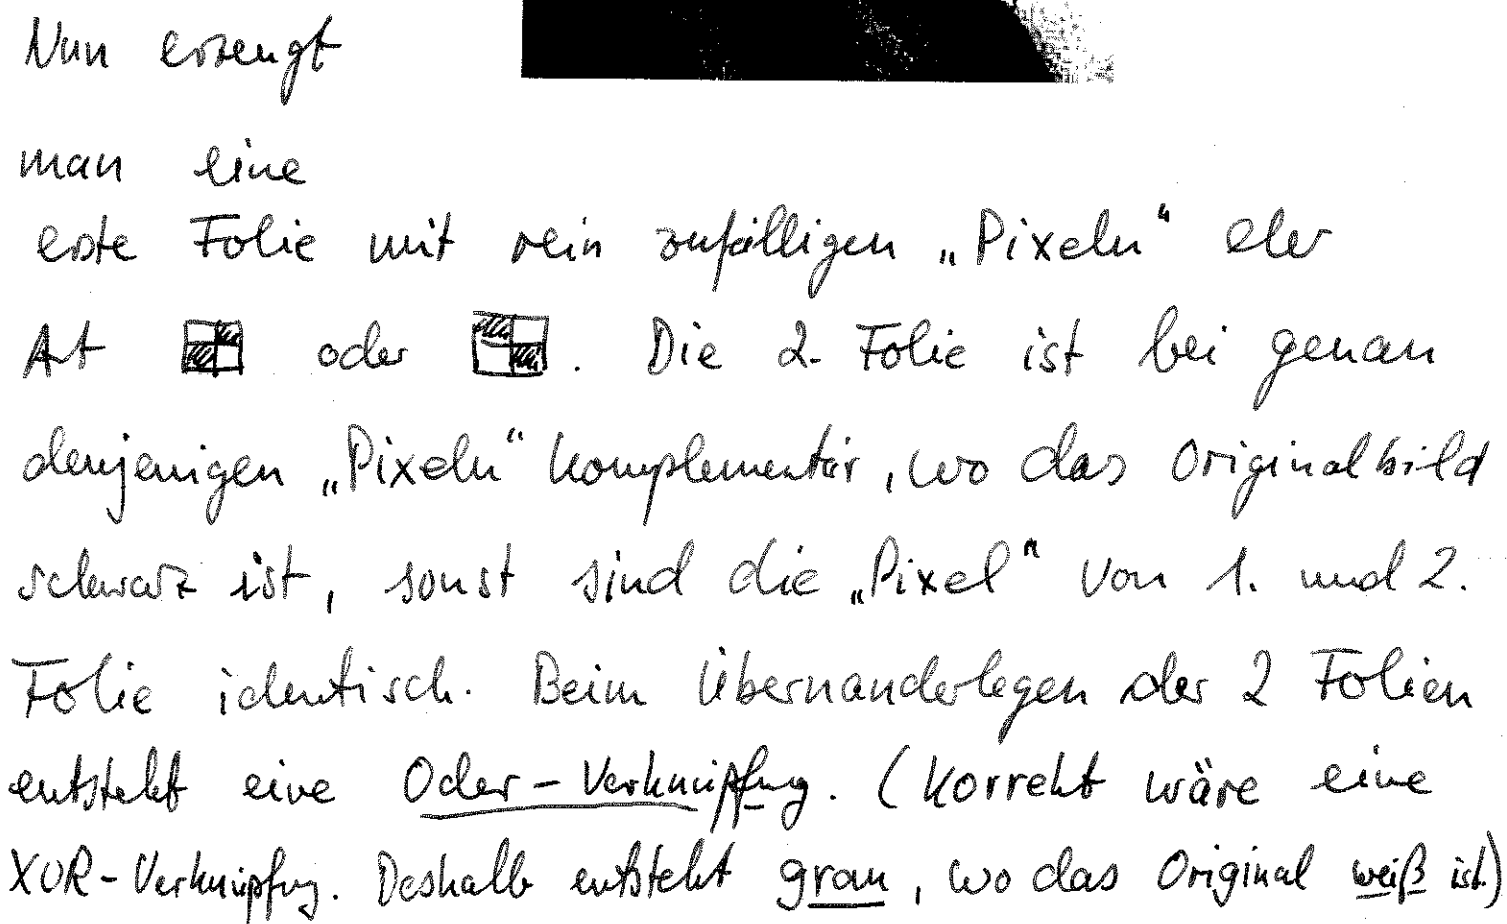 Nun erzeugt
man eine
erste Folie mit rein zufälligen „Pixeln“ der
Art oder . Die 2. Folie ist bei genau
denjenigen „Pixeln“ komplementär, wo das Originalbild
schwarz ist, sonst sind die „Pixel“ von 1. und 2.
Folie identisch. Beim Übernanderlegen der 2 Folien
entsteht eine Oder-Verknüpfung. (Korrekt wäre eine
XOR-Verknüpfung. Deshalb entsteht grau, wo das Original weiß ist.)